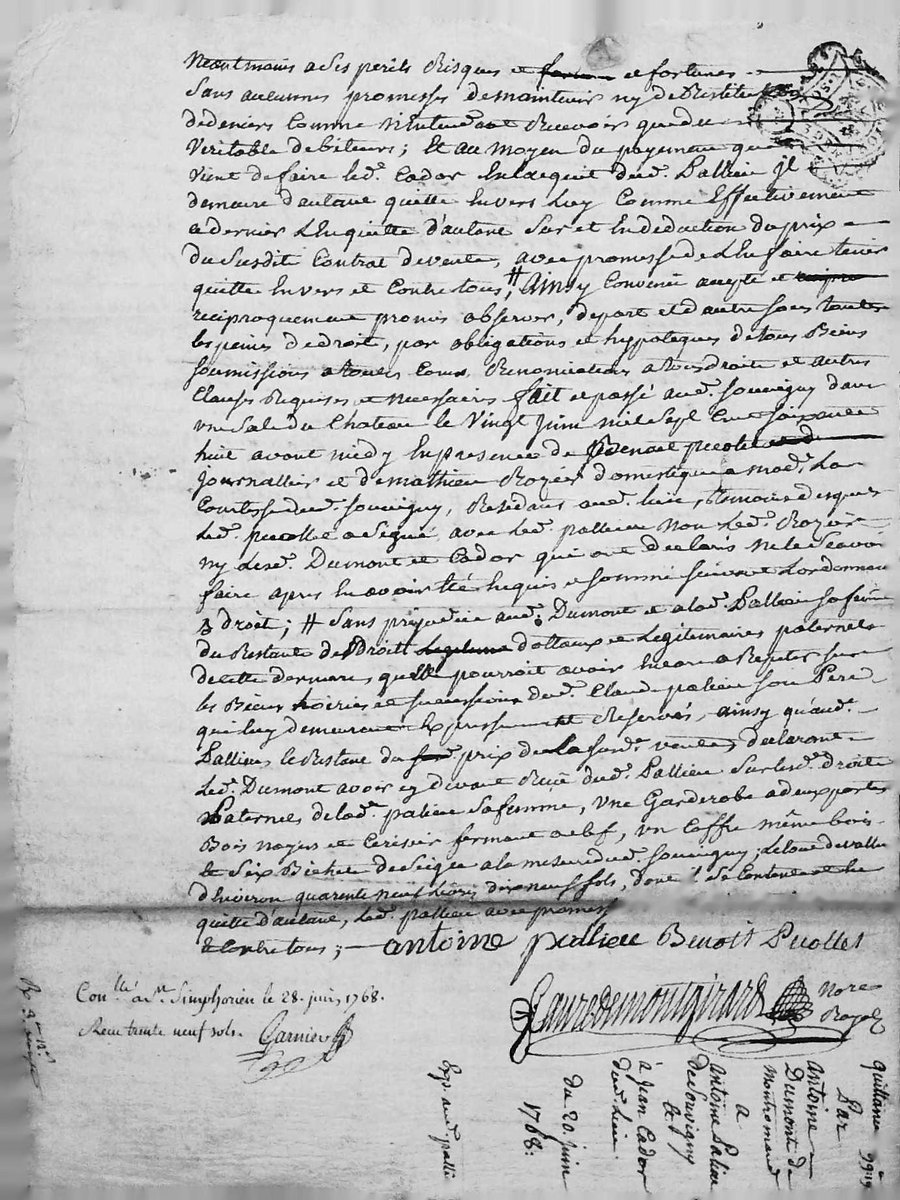 Neantmoins a Ses perils Risques et et fortunes
Sans aucunes promesses de maintenir ny de Restitution
de deniers Comme Recevoir que du
Veritable debiteurs; Et au moyen du payement que
Vient de faire led. Cador En lacquit dud. Pallieu jl
demeure d'autant quitte Envers Luy Comme Effectivement
a dernier L'En quitte d'autant Sur et En deduction du prix
du Susdit Contrat de vente, avec promesse de L'En faire tenir
quitte Envers et Contre tous, # Ainsy Convenu accepté et
reciproquement promis observer, de part et d'autre sous toutes
les peines de droit, par obligations et hypoteques de tous Biens
Soumissions a toutes Cours Renonciations a tous droits et autres
Clauses Requises et necessaires fait et passé aud. Souvigny dans
une Sale du Chateau le Vingt juin mil Sept Cent Soixante
huit avant midy En presence de Benoit picollet
journallier et de mathieu Royer domestique a mad. La
Comtesse dud. Souvigny, Residans aud. lieu, temoins desquels
Led. picollet a Signé, avec Led. pallieu Non Led. Royer
ny Lesd. Dumont et Cador qui ont declaré ne le Scavoir
faire apres En avoir Eté Enquis et Sommé Suivant L'ordonnance
droit; # Sans prejudice aud. Dumont et a lad. Pallieu Sa femme
du Restant de Droit dottaux et Legitimaires paternels
de cette derniere qu'elle pourroit avoir Encore a Repeter Sur
les Biens hoiries et Successions dud. Claude palieu Son Pere
qui luy demeurent Expressement Reservés, ainsy qu'aud.
Pallieu le Restant du prix de La Susd. vente, declarant
Led. Dumont avoir cy devant Reçu dud. Pallieu Sur lesd. droits
Paternels de lad. palieu Sa femme, Une Garderobe a deux portes
Bois noyer et Cerisier fermant a clef, un Coffre même bois
& Six Bichets de Seigle a la mesure dud. Souvigny, Le tout de valleur
d'Environ quarente neuf Livres dix neuf Sols, dont il Se Contente et En
quitte d'autant, Led. pallieu avec promesse
& Contre tous;
antoine pallieu Benoit Picollet
Con.llé a St. Simphorien le 28. juin 1768.
Recu trente neuf sols. Garnier
Lauredemontgirard Nore Royal
quittance
Par
Antoine
Dumont de
Montromand
A
Antoine Palieu
de Souvigny
&
à Jean Cador
dud. Lieu
du 20. juin
1768.